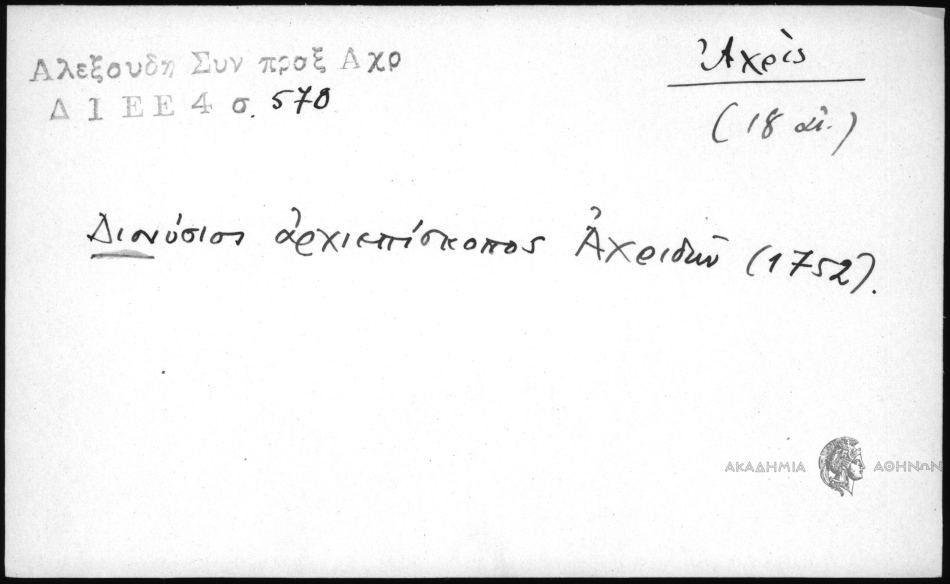 Αλεξουδη Συν πραξ Αχρ
Δ Ι Ε Ε 4 σ. 570
Ἀχρὶς
(18 αἰ.)
Διονύσιος ἀρχιεπίσκοπος Ἀχριδῶν (1752).
ΑΚΑΔΗΜΙΑ ΑΘΗΝΩΝ